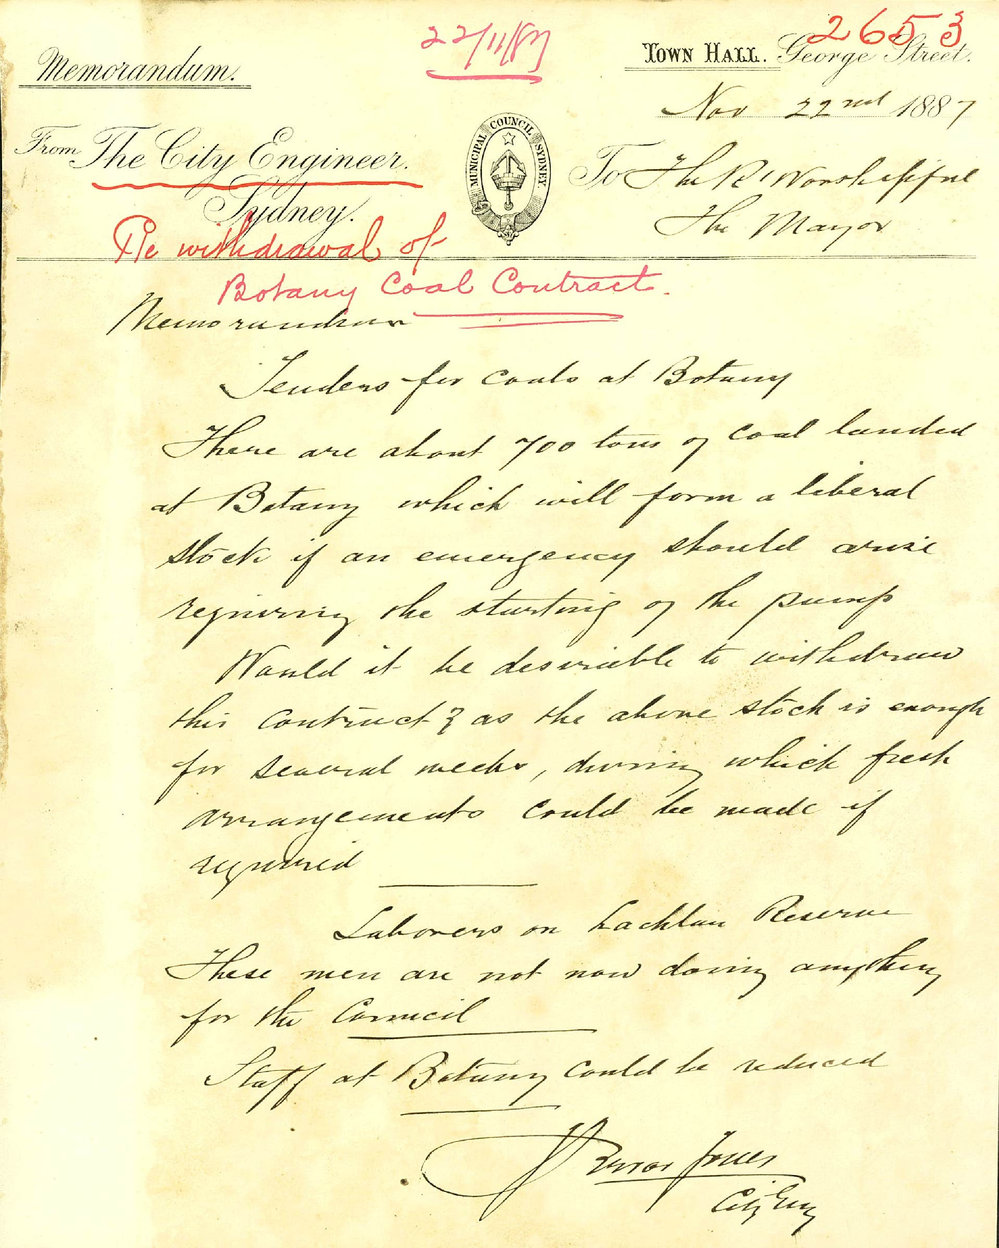 2653
22/11/87
Memorandum.
TOWN HALL. George Street.
Nov 22nd 1887
From The City Engineer.
Sydney.
MUNICIPAL COUNCIL SYDNEY
To The Rt Worshipful
The Mayor
Re withdrawal of
Botany Coal Contract.
Memorandum
Tenders for coals at Botany
There are about 700 tons of coal landed
at Botany which will form a liberal
stock if an emergency should arise
requiring the starting of the pump
Would it be desirable to withdraw
this contract? as the above stock is enough
for several weeks, during which fresh
arrangements could be made if
required
Laborers on Lachlan Reserve
These men are not now doing anything
for the Council
Staff at Botany could be reduced
Trevor Jones
City Eng